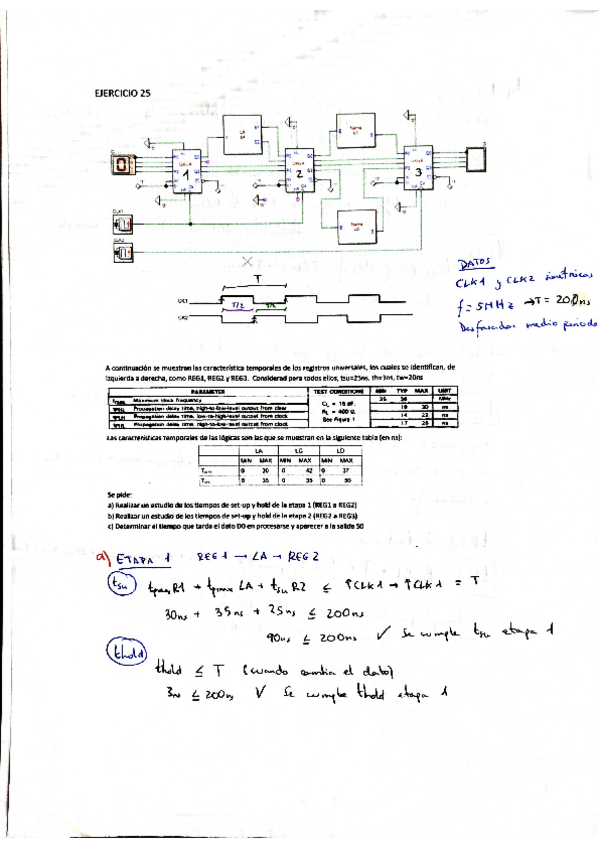 EJERCICIO 25
1
2
3
CLK1
CLK2
DATOS
CLK1 y CLK2 simétricas
f = 5MHz → T = 200ns
Desfasadas medio periodo
T
T/2
T/2
CK1
CK2
A continuación se muestran las característica temporales de los registros universales, los cuales se identifican, de
izquierda a derecha, como REG1, REG2 y REG3. Considerad para todos ellos, tsu=25ns, th=3ns, tw=20ns
PARAMETER TEST CONDITIONS MIN TYP MAX UNIT
Maximum clock frequency 25 36 MHz
tPHL Propagation delay time, high-to-low-level output from clear CL = 15 pF, 19 30 ns
tPLH Propagation delay time, low-to-high-level output from clock RL = 400 Ω 14 22 ns
tPHL Propagation delay time, high-to-low-level output from clock See Figure 1 17 26 ns
Las características temporales de las lógicas son las que se muestran en la siguiente tabla (en ns):
LA LC LD
MIN MAX MIN MAX MIN MAX
0 30 0 42 0 37
0 35 0 35 0 50
Se pide:
a) Realizar un estudio de los tiempos de set-up y hold de la etapa 1 (REG1 a REG2)
b) Realizar un estudio de los tiempos de set-up y hold de la etapa 2 (REG2 a REG3)
c) Determinar el tiempo que tarda el dato D0 en procesarse y aparecer a la salida S0
a) ETAPA 1 REG1 → LA → REG2
tsu tpmax R1 + tpmax LA + tsu R2 ≤ ↑CLK1 → ↑CLK1 = T
30ns + 35ns + 25ns ≤ 200ns
90ns ≤ 200ns ✓ Se cumple tsu etapa 1
thold
thold ≤ T (cuando cambia el dato)
3ns ≤ 200ns ✓ Se cumple thold etapa 1